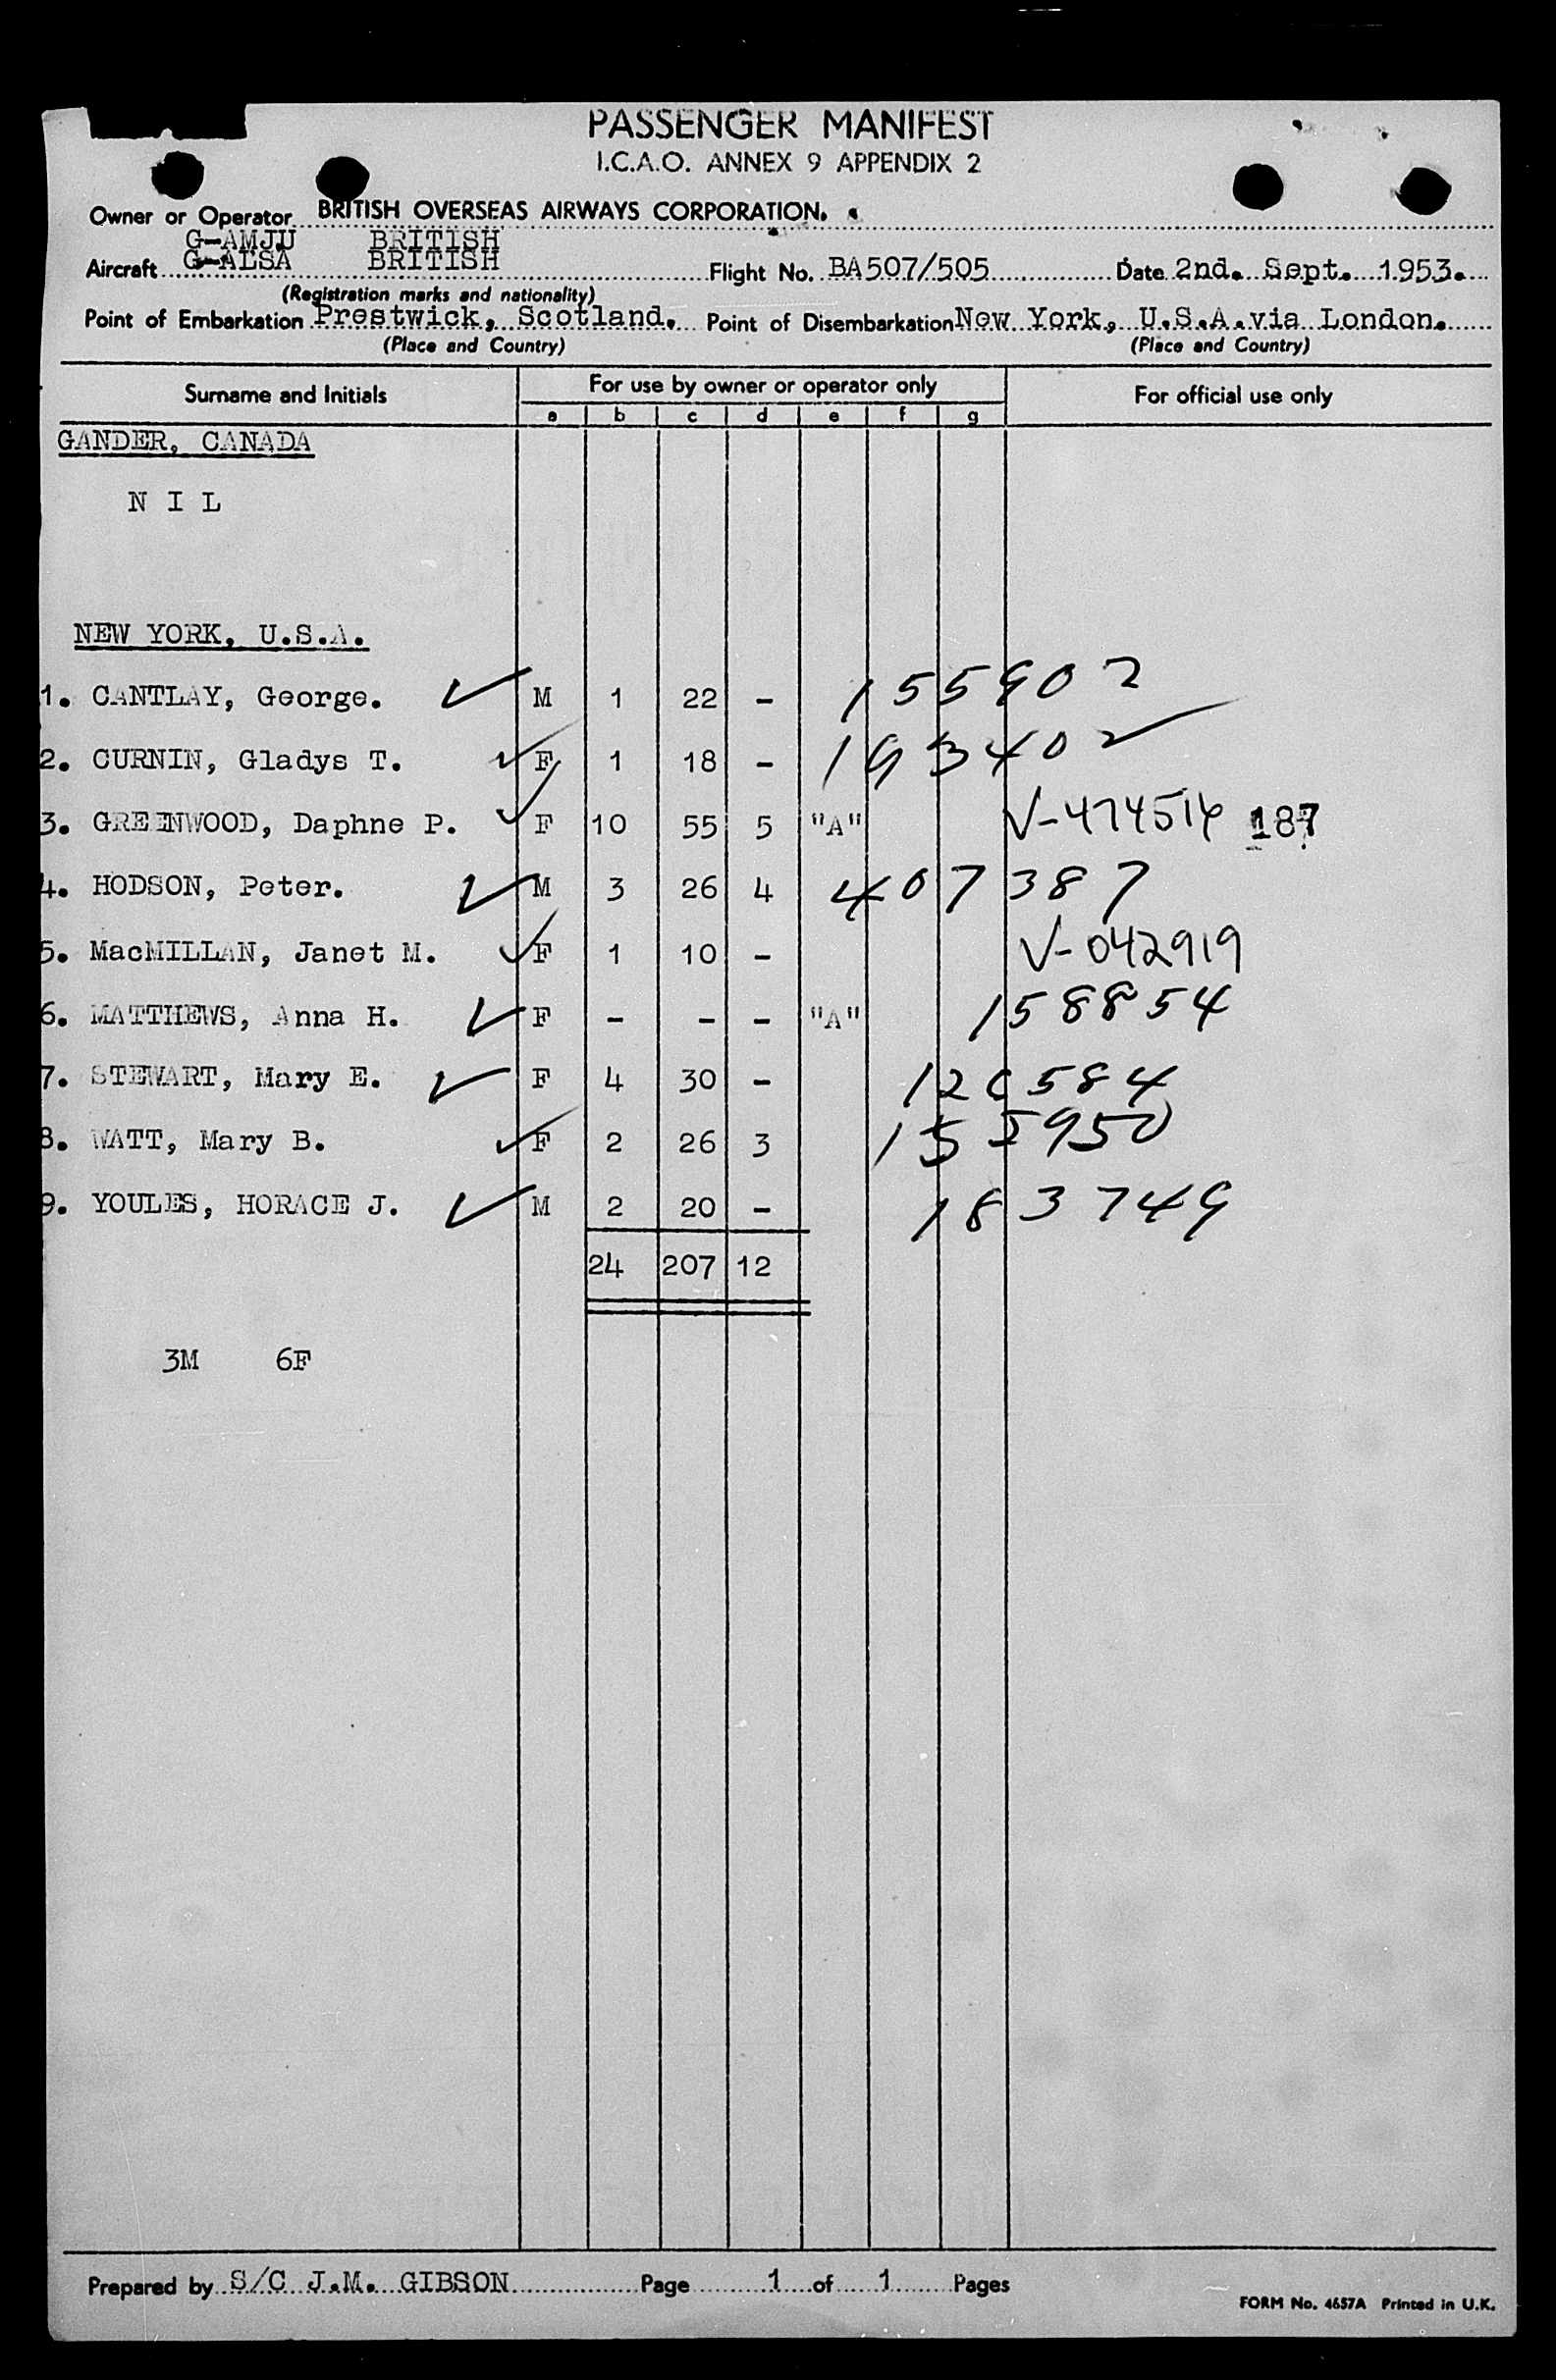 PASSENGER MANIFEST
I.C.A.O. ANNEX 9 APPENDIX 2
Owner or Operator BRITISH OVERSEAS AIRWAYS CORPORATION.
G-AMJU BRITISH
Aircraft G-ALSA BRITISH Flight No. BA507/505 Date 2nd. Sept. 1953.
(Registration marks and nationality)
Point of Embarkation Prestwick, Scotland. Point of Disembarkation New York, U.S.A. via London.
(Place and Country) (Place and Country)
Surname and Initials For use by owner or operator only For official use only
a b c d e f g
GANDER, CANADA
N I L
NEW YORK, U.S.A.
1. CANTLAY, George. M 1 22 - 155902
2. CURNIN, Gladys T. F 1 18 - 193402
3. GREENWOOD, Daphne P. F 10 55 5 "A" 187
4. HODSON, Peter. M 3 26 4 407387
5. MacMILLAN, Janet M. F 1 10 - V-042919
6. MATTHEWS, Anna H. F - - - "A" 158854
7. STEWART, Mary E. F 4 30 - 126584
8. WATT, Mary B. F 2 26 3 155950
9. YOULES, HORACE J. M 2 20 - 183749
24 207 12
3M 6F
Prepared by S/C J.M. GIBSON Page 1 of 1 Pages
FORM No. 4657A Printed in U.K.